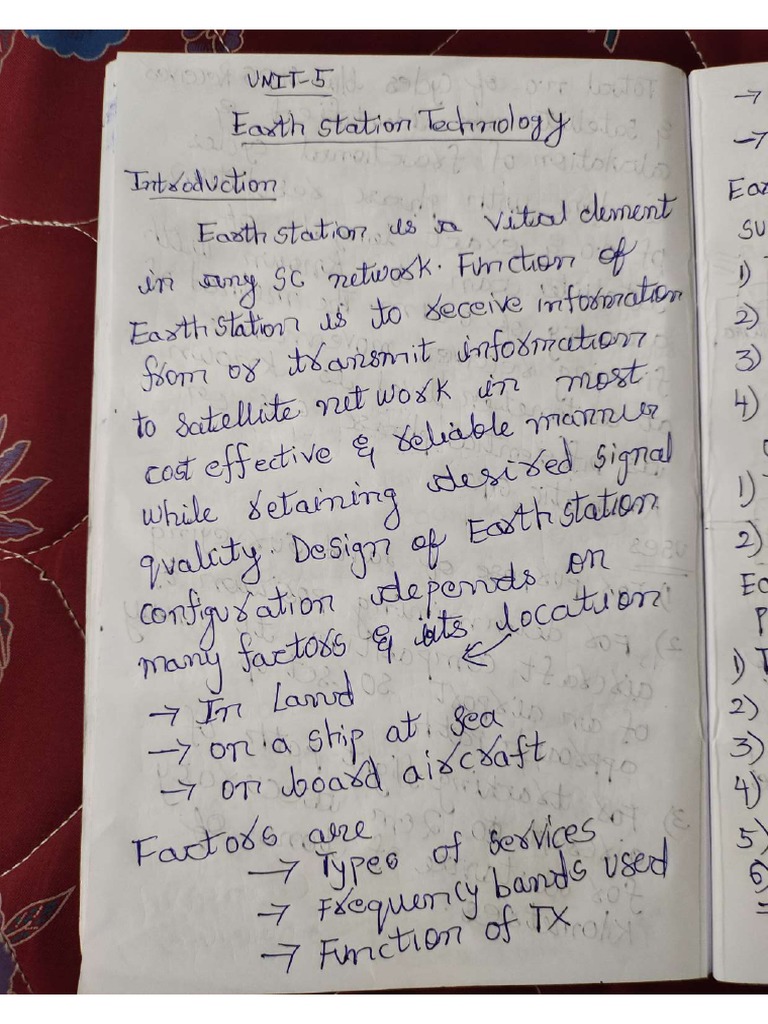 UNIT-5
Earth station Technology
Introduction
Earth station is a vital element
in any SC network. Function of
Earth station is to receive information
from or transmit information
to satellite network in most
cost effective & reliable manner
while retaining desired signal
quality. Design of Earth station
configuration depends on
many factors & its location
→ In Land
→ on a ship at sea
→ on board aircraft
Factors are
→ Types of services
→ Frequency bands used
→ Function of TX
→
→
Ear
su
1)
2)
3)
4)
1)
2)
Ea
P
1)
2)
3)
4)
5)
6)